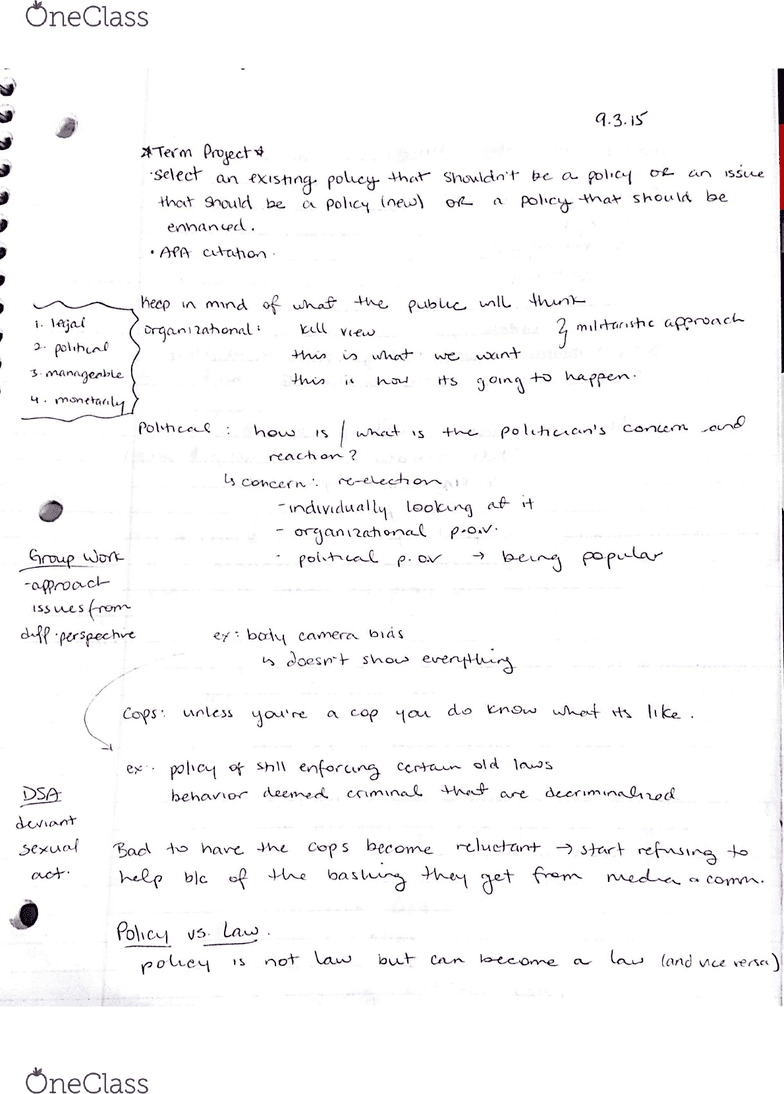 OneClass
9.3.15
*Term Project*
·select an existing policy that shouldn't be a policy OR an issue
that should be a policy (new) OR a policy that should be
enhanced.
· APA citation.
Keep in mind of what the public will think
1. legal
2. political
3. manageable
4. monetarily
organizational: kill view } militaristic approach
this is what we want
this is how its going to happen.
Political: how is / what is the politician's concern and
reaction?
↳ concern: re-election
- individually looking at it
- organizational p.o.v.
- political p.o.v → being popular
Group Work
-approach
issues from
diff. perspective
ex: body camera bias
↳ doesn't show everything
Cops: unless you're a cop you do know what its like.
ex: policy of still enforcing certain old laws
behavior deemed criminal that are decriminalized
DSA
deviant
sexual
act.
Bad to have the cops become reluctant → start refusing to
help b/c of the bashing they get from media & comm.
Policy vs. Law.
policy is not law but can become a law (and vice versa)
OneClass